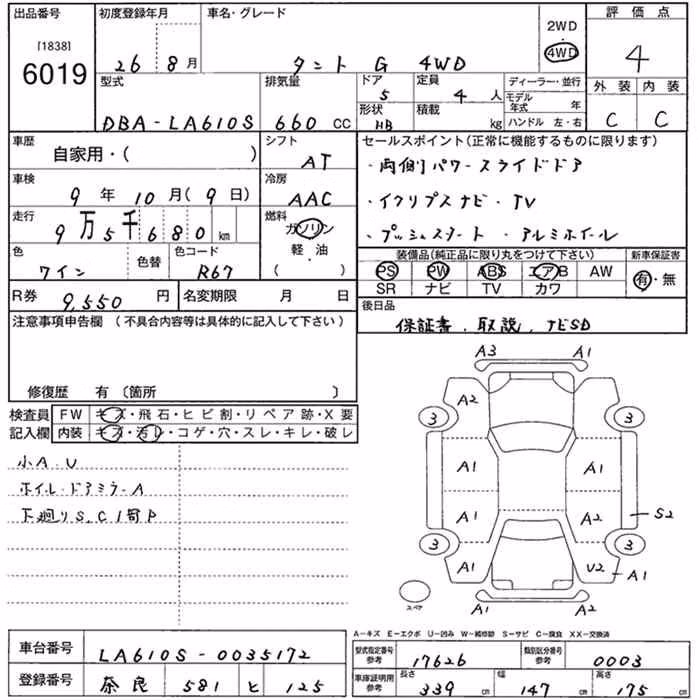 出品番号 初度登録年月 車名・グレード 2WD ・ 4WD 評価点
[1838] 6019 26 8月 タント G 4WD 4
型式 排気量 ドア 定員 ディーラー・並行 外装 内装
DBA-LA610S 660 CC 5 4 人 モデル年式 年 C C
形状 HB 積載 kg ハンドル 左・右
車歴 シフト セールスポイント(正常に機能するものに限ります)
自家用・( ) AT ・両側パワースライドドア
車検 冷房
9年 10月(9日) AAC ・イクリプスナビ・TV
走行 燃料
9万5千680 km ガソリン ・プッシュスタート・アルミホイール
色 色替 色コード 軽・油 装備品(純正品に限り丸をつけて下さい) 新車保証書
ワイン R67 ( ) PS PW ABS エアB AW 有・無
SR ナビ TV カワ
R券 9,550 円 名変期限 月 日 後日品
注意事項申告欄 (不具合内容等は具体的に記入して下さい) 保証書、取説、ナビSD
修復歴 有 〔箇所 〕
検査員 FW キズ・飛石・ヒビ割・リペア跡・X要
記入欄 内装 キズ・汚レ・コゲ・穴・スレ・キレ・破レ
小A.U
ホイル・ドアミラーA
下廻りS.C1寄P
A3 A1
A2
3 3
A1 A1
A1 A2 S2
3 3
A1 U2 A1
スペア A1 A2
A-キズ E-エクボ U-凹み W-補修跡 S-サビ C-腐食 XX-交換済
車台番号 LA610S-0035172 型式指定番号 参考 17626 類別区分番号 参考 0003
登録番号 奈良 581 と 125 車庫証明用 参考 長さ 339 cm 幅 147 cm 高さ 175 cm